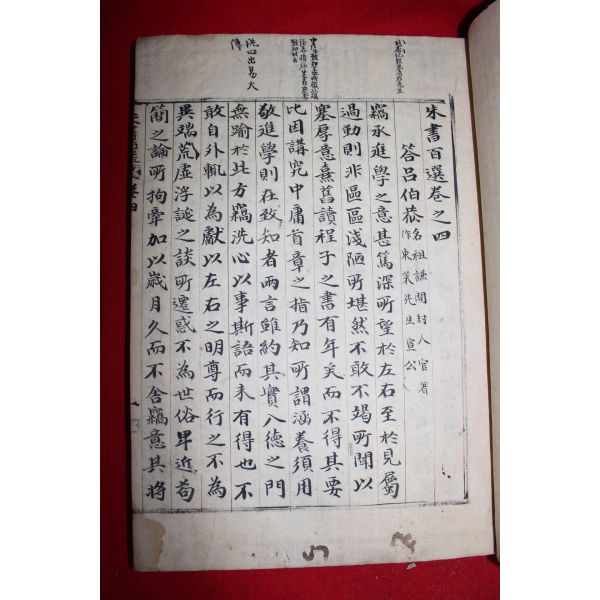 洗心出易大
傳
朱書百選卷之四
答呂伯恭 名祖謙開封人官著
作東萊先生宣公
竊承進學之意甚篤深所望於左右至於見屬
過動則非區區淺陋所堪然不敢不竭所聞以
塞厚意熹舊讀程子之書有年矣而不得其要
比因講究中庸首章之指乃知所謂涵養須用
敬進學則在致知者兩言雖約其實入德之門
無踰於此方竊洗心以事斯語而未有得也不
敢自外輒以為獻以左右之明尊而行之不為
異端荒虛浮誕之談所遷惑不為世俗卑近苟
簡之論所拘牽加以歲月久而不舍竊意其將